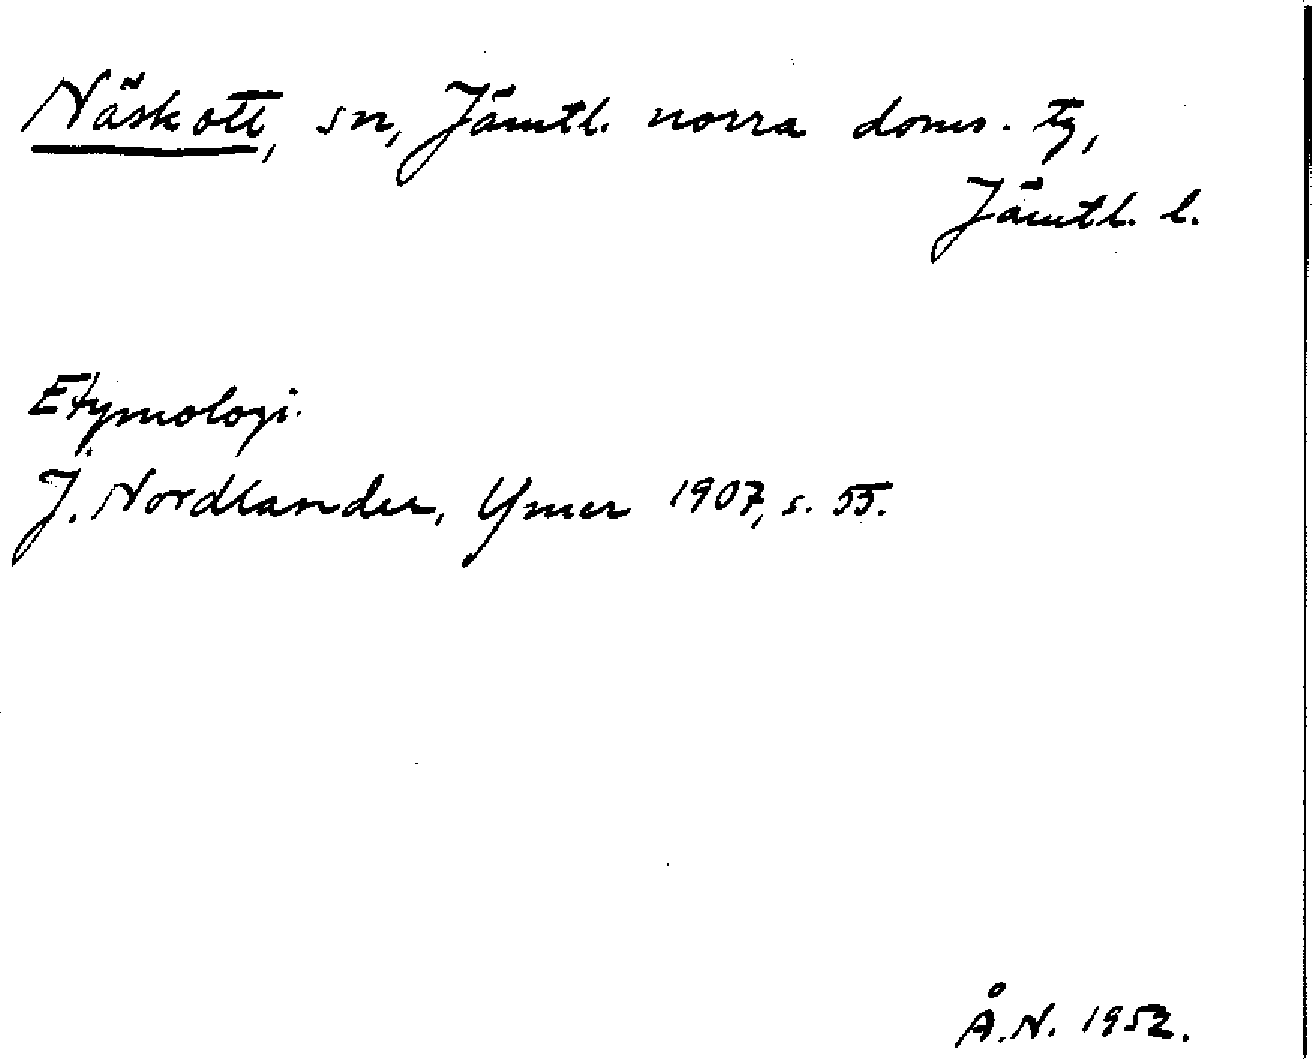 Näskott, sn, Jämtl. norra doms. tg,
Jämtl. l.
Etymologi.
J. Nordlander, Ymer 1907, s. 55.
Å.N. 1952.